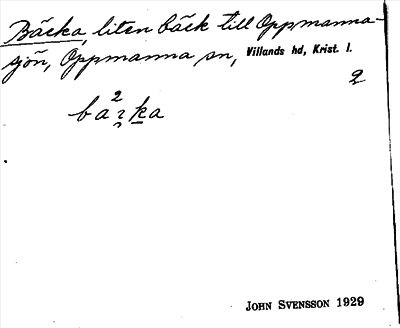 Bäcka, liten bäck till Oppmanna-
sjön, Oppmanna sn, Villands hd, Krist. l.
2
JOHN SVENSSON 1929